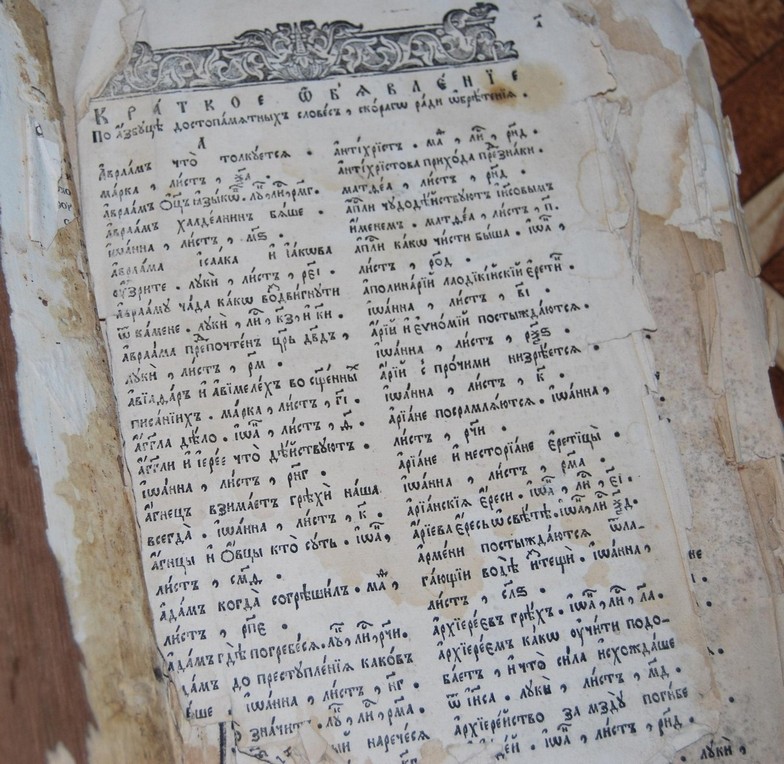 КРА́ТКОЕ Ѡ҆БЪѦВЛЕ́НЇЕ
По а҆́збꙋцѣ достопа́мѧтныхъ слове́съ, ско́рагѡ ра́ди ѡ҆брѣ́тенїѧ.
А
А҆враа́мъ что̀ толкꙋ́етсѧ.
ма́рка, ли́стъ,
А҆враа́мъ Ѻ҆ц҃ъ ꙗ҆зы́кѡ.
А҆враа́мъ халде́анинъ бѧ́ше.
і҆ѡа́нна, ли́стъ, м҃ѕ.
А҆враа́ма і҆саа́ка и҆ і҆а́кѡва
ᲂу҆́зрите. лꙋкѝ, ли́стъ, рє҃і.
А҆враа́мꙋ ча́да ка́кѡ воздви́гнꙋти
ѿ ка́мене. лꙋкѝ, ли, к҃з, и҆ к҃и.
А҆враа́ма препочте́нъ цр҃ь дв҃дъ,
лꙋкѝ, ли́стъ, р҃м.
А҆вїаѳа́ръ и҆ а҆вїмеле́хъ во сщ҃е́нны
писа́нїихъ. ма́рка, ли́стъ, г҃і.
А҆́гг҃ла дѣ́ло. і҆ѡа, ли́стъ,
А҆́гг҃ли и҆ і҆ере́є что̀ дѣ́йствꙋютъ.
і҆ѡа́нна, ли́стъ, рн҃г.
А҆́гнецъ взима́етъ грѣхѝ на́ша
всегда̀. і҆ѡа́нна, ли́стъ, к҃.
А҆́гнцы и҆ Ѻ҆́вцы кто̀ сꙋ́ть. і҆ѡа,
ли́стъ, см҃д.
А҆да́мъ когда̀ согрѣши́лъ. ма,
ли́стъ, рп҃є.
А҆да́мъ гдѣ̀ погребе́сѧ. лꙋ, ли, рч҃и.
да́мъ до престꙋпле́нїѧ какѡ́въ
бѣ́ше, і҆ѡа́нна, ли́стъ, н҃г.
значи́тъ. лꙋ, ли, рм҃а.
нарече́сѧ
А҆нті́хрїстъ. ма, ли, рн҃д.
А҆нті́хрїстова прихо́да при́знаки.
матѳе́а, ли́стъ, рн҃д.
А҆п҃ли чꙋдодѣ́йствꙋютъ і҆и҃совымъ
и҆́менемъ. матѳе́а, ли́стъ, п҃.
А҆п҃ли ка́кѡ чи́сти бы́ша. і҆ѡа,
ли́стъ, ро҃д.
А҆полина́рїй лаѡдїкі́йскїй є҆рети.
і҆ѡа́нна, ли́стъ, в҃і.
А҆́рїй и҆ є҆ѵно́мїй постыжда́ютсѧ.
і҆ѡа́нна, ли́стъ, рѯ҃ѕ.
А҆́рїй с про́чими низрѣ́етсѧ.
і҆ѡа́нна, ли́стъ, к҃.
А҆рїа́не посрамлѧ́ютсѧ. і҆ѡа́нна,
ли́стъ, рч҃и.
А҆рїа́не и҆ несторїа́не є҆рети́цы.
і҆ѡа́нна, ли́стъ, рм҃а.
А҆рїа́нскїѧ є҆́реси. і҆ѡа, ли, є҃і.
А҆́рїева є҆́ресь ѡ҆ свѣ́тѣ. і҆ѡа, ли,
А҆рме́ни постыжда́ютсѧ ѿла-
га́ющїи водꙋ̀ и҆стещѝ. і҆ѡа́нна,
ли́стъ, сл҃ѕ.
А҆рхїере́євъ грѣ́хъ. і҆ѡа, ли, л҃а.
А҆рхїере́ємъ ка́кѡ ᲂу҆чи́ти подо-
ба́етъ, и҆ что̀ си́ла и҆схожда́ше
ѿ і҆и҃са. лꙋкѝ, ли́стъ, м҃д.
А҆рхїере́йство за мздꙋ̀ поги́бе
і҆ѡа, ли́стъ, рн҃д.
лꙋкѝ,